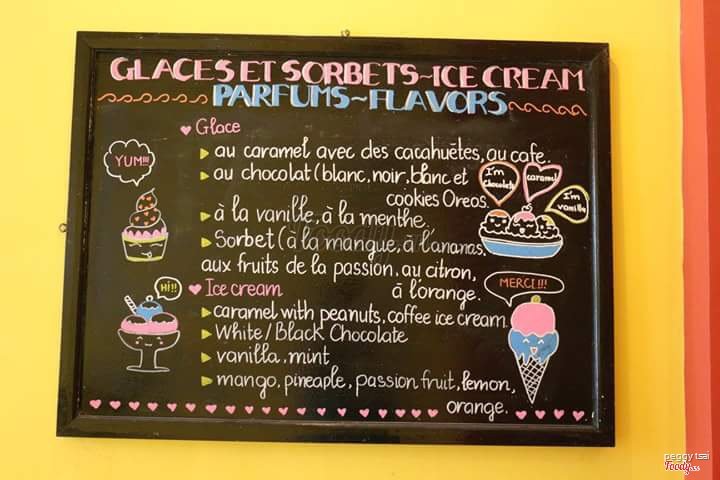 GLACES ET SORBETS~ICE CREAM
PARFUMS~FLAVORS
Glace
au caramel avec des cacahuètes, au cafe.
au chocolat (blanc, noir, blanc et
cookies Oreos.
à la vanille, à la menthe.
Sorbet (à la mangue, à l'ananas,
aux fruits de la passion, au citron,
à l'orange.
Ice cream
caramel with peanuts, coffee ice cream.
White/Black Chocolate
vanilla, mint
mango, pineaple, passion fruit, lemon,
orange.
YUM!!!
HI!!
I'm chocolate
caramel
I'm vanilla
MERCI!!
peggy tsai
Foody.vn